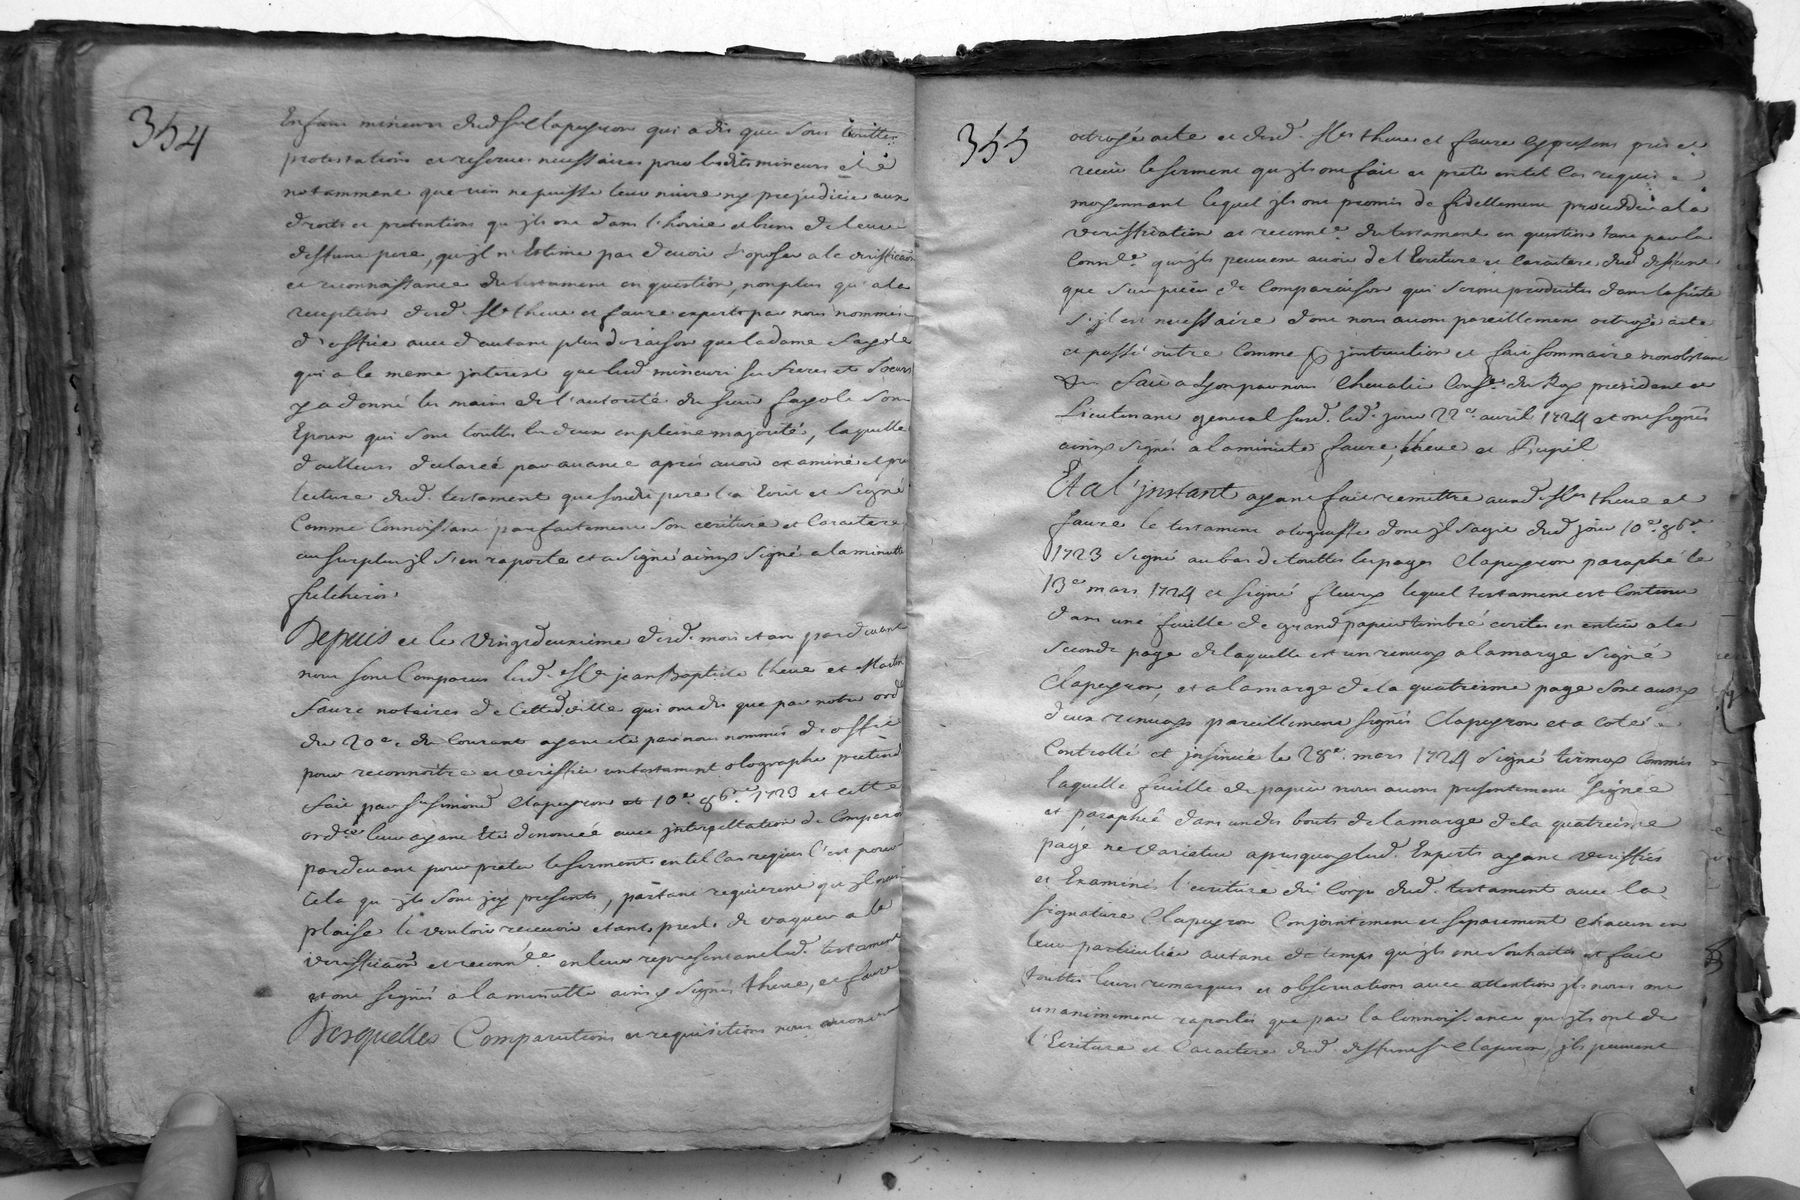 354
Enfans mineurs dud. Sr Clapeyron qui a dit que sous touttes
protestations et reserves necessaires pour lesdits mineurs et a
notamment que rien ne puisse leur nuire ny prejudicier aux
droits et pretentions qu'jls ont dans l'hoirie et biens de leur
deffunt pere, qu'jl n'Estime pas devoir s'oposer a la veriffication
et reconnoissance du testament en question, non plus qu'a la
reception desd. Mes theve et faure experts par nous nommés
d'office avec d'autant plus de raison que la dame Sayole
qui a le meme jnterest que lesd. mineurs ses freres et soeurs
y a donné les mains de l'autorité du sieur Sayole son
Epoux qui sont touttes les deux en pleine majorité, laquelle
d'ailleurs declaréé par avance aprés avoir examiné et pris
lecture dud. testament que sondit pere l'a Ecrit et signé
Comme Connoissant parfaitement son ecriture et Caractere
au surplus jl s'en raporte et a signé ainsy signé a la minutte
felchiron.
Depuis et le vingtdeuxième desd. mois et an pardevant
nous sont Comparus lesd. Mes jean Baptiste theve et Martin
faure notaires de Cette ville qui ont dit que par notre ordce
du 20e. du Courant ayant eté par nous nommés d'office
pour reconnoitre et veriffier un testament olographe pretend.
fait par Sr Simond Clapeyron le 10e. 8bre. 1723 et cette
ordce leur ayant Eté denoncéé avec jnterpellation de Comparoir
pardevant pour preter le serment en tel Cas requis C'est pour
Cela qu'jls sont jcy presents, partant requierent qu'jl nous
plaise le vouloir recevoir etants prests de vaquer a la
veriffication et reconnce. en leur representant led. testament
et ont signés a la minutte ainsy signés theve, et faure
Desquelles Comparutions et requisitions nous avons
355
octroyé acte et desd. Mes theve et faure Exp presens pris et
receu le serment qu'jls ont fait et preté en tel Cas requis
moyennant lequel jls ont promis de fidellement proceder a la
veriffication et reconnce. du testament en question tant par la
Connce. qu'jls peuvent avoir de l'Ecriture et Caractere dud. deffunt
que sur pieces de Comparaison qui seront produites dans la suite
s'jl est necessaire dont nous avons pareillement octroyé acte
et passé outre Comme jnstruction et fait sommaire nonobstant
&a. fait a Lyon par nous Chevalier Conser. du Roy president et
Lieutenant general susd. led. jour 22e. avril 1724 et ont signés
ainsy signés a la minute faure, theve et Pupil
Et a l'jnstant ayant fait remettre auxd. Mes theve et
faure le testament olograffe dont jl s'agit dud. jour 10e. 8bre.
1723 signé au bas de touttes les pages Clapeyron paraphé le
13e mars 1724 et signé fleury lequel testament est Contenu
dans une feuille de grand papier timbré ecrites en entier a la
seconde page de laquelle est un renvoy a la marge signé
Clapeyron, et a la marge de la quatrieme page sont aussy
deux renvoys pareillement signés Clapeyron et a coté
Controllé et jnsinué le 28e. mars 1724 signé Commis
laquelle feuille de papier nous avons presentement signéé
et paraphéé dans un des bouts de la marge de la quatrieme
page ne varietur apres quoy lesd. Experts ayant veriffiés
et Examinés l'ecriture du Corps dud. testament avec la
signature Clapeyron Conjointement et separement chacun en
leur particulier autant de temps qu'jls ont souhaités et fait
touttes leurs remarques et observations avec attention jls nous ont
unanimement raportés que par la Connoissance qu'jls ont de
l'Ecriture et Caractere dud. deffunt Sr Clapeyron, jls peuvent